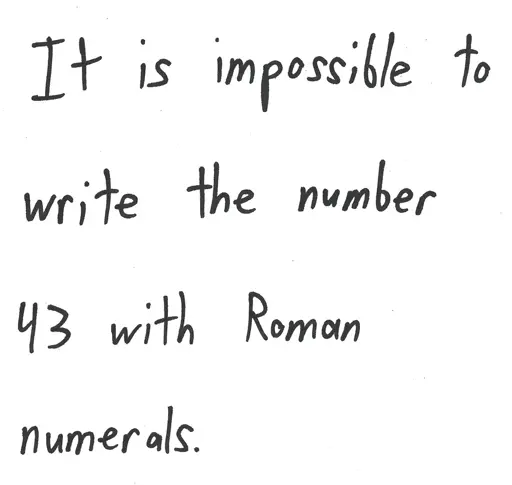 It is impossible to
write the number
43 with Roman
numerals.